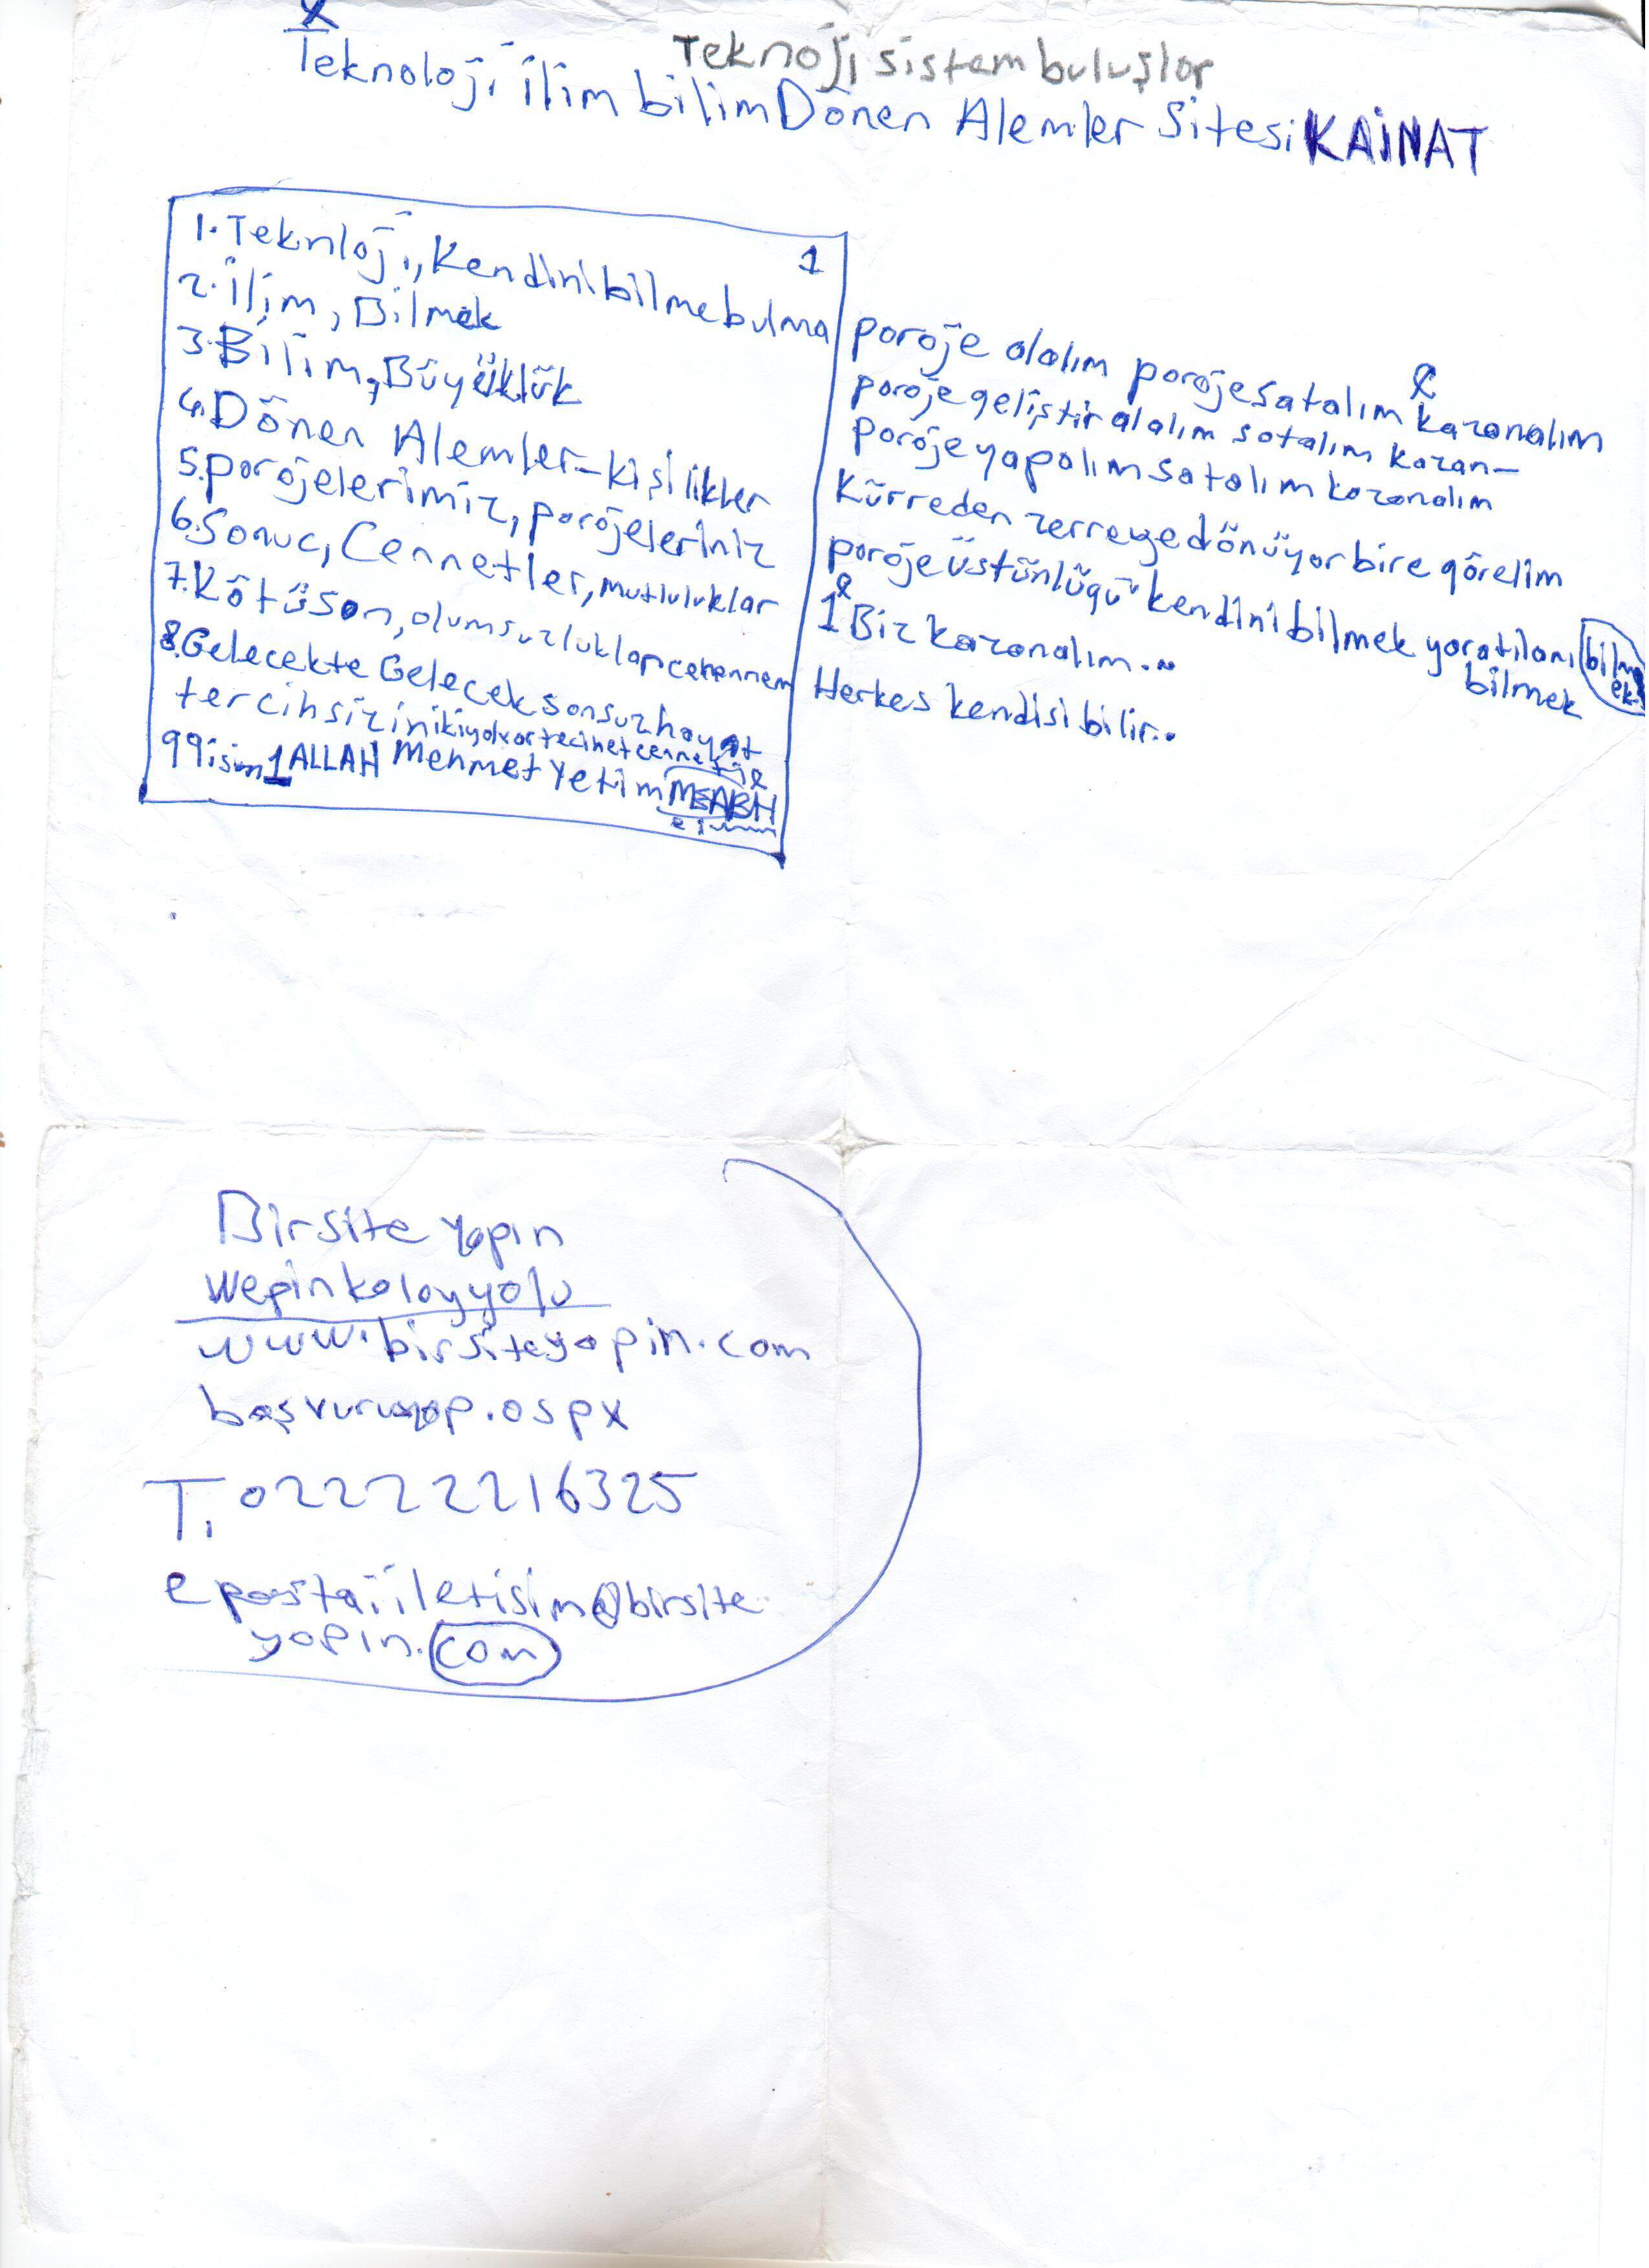 Teknoji sistem buluşlar
Teknoloji ilim bilim Dönen Alemler Sitesi KAİNAT
1
1. Teknloji, Kendini bilme bulma
2. İlim, Bilmek
3. Bilim, Büyüklük
4. Dönen Alemler-kişilikler
5. porojelerimiz, porojeleriniz
6. Sonuc, Cennetler, mutluluklar
7. Kötü son, olumsuzluklar cehennem
8. Gelecekte Gelecek sonsuz hayat
tercih sizin iki yol var
99 isim 1 ALLAH Mehmet Yetim
poroje alalım poroje satalım kazanalım
poroje geliştir alalım satalım kazan-
poroje yapalım satalım kazanalım
Kürreden zerreye dönüyor bire görelim
poroje üstünlüğü kendini bilmek yaratılanı bilmek
bilmek
1 Biz kazanalım...
Herkes kendisi bilir..
Birsite yapın
Wepin kolay yolu
www.birsiteyapin.com
başvuruyap.aspx
T. 02222216325
e posta: iletisim@birsite
yapin.com